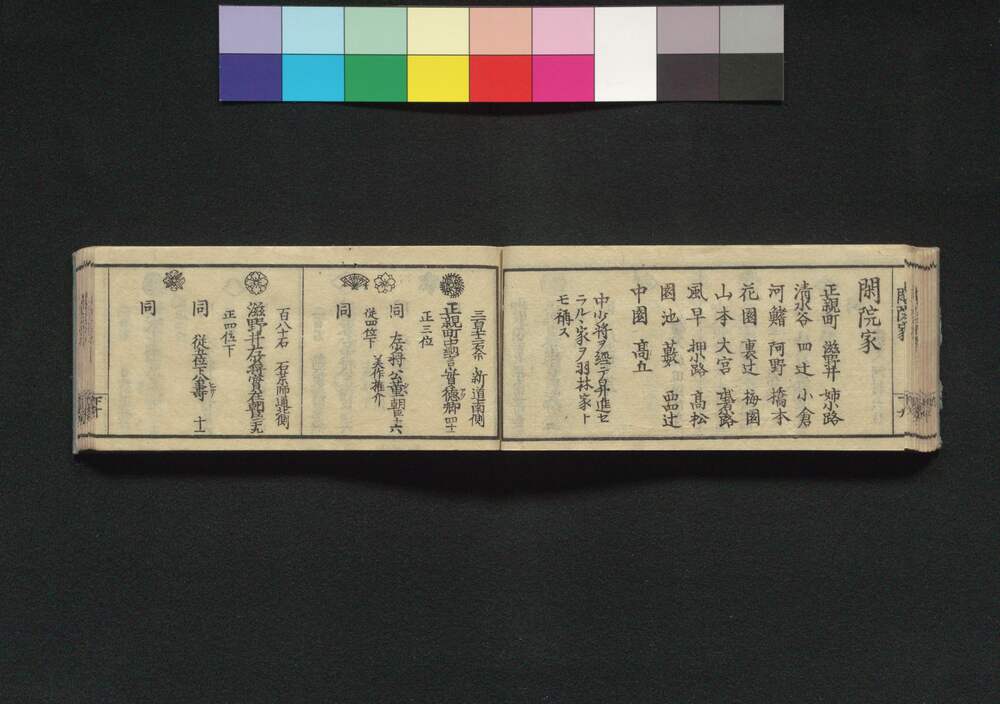 閑院家
正親町　滋野井　姉小路
清水谷　四辻　小倉
河鰭　阿野　橋本
花園　裏辻　梅園
山本　大宮　武者小路
風早　押小路　高松
園池　藪　西四辻
中園　高丘
中少将ヲ經テ昇進セ
ラル家ヲ羽林家ト
モ稱ス
新道南側
正親町中納言實德卿
正三位
同　左少将公董朝臣
従四位下　美作権介
同
百八十石　石薬師通北側
滋野井左少将實在朝臣
正四位下
同　従五位下公壽　十一
同